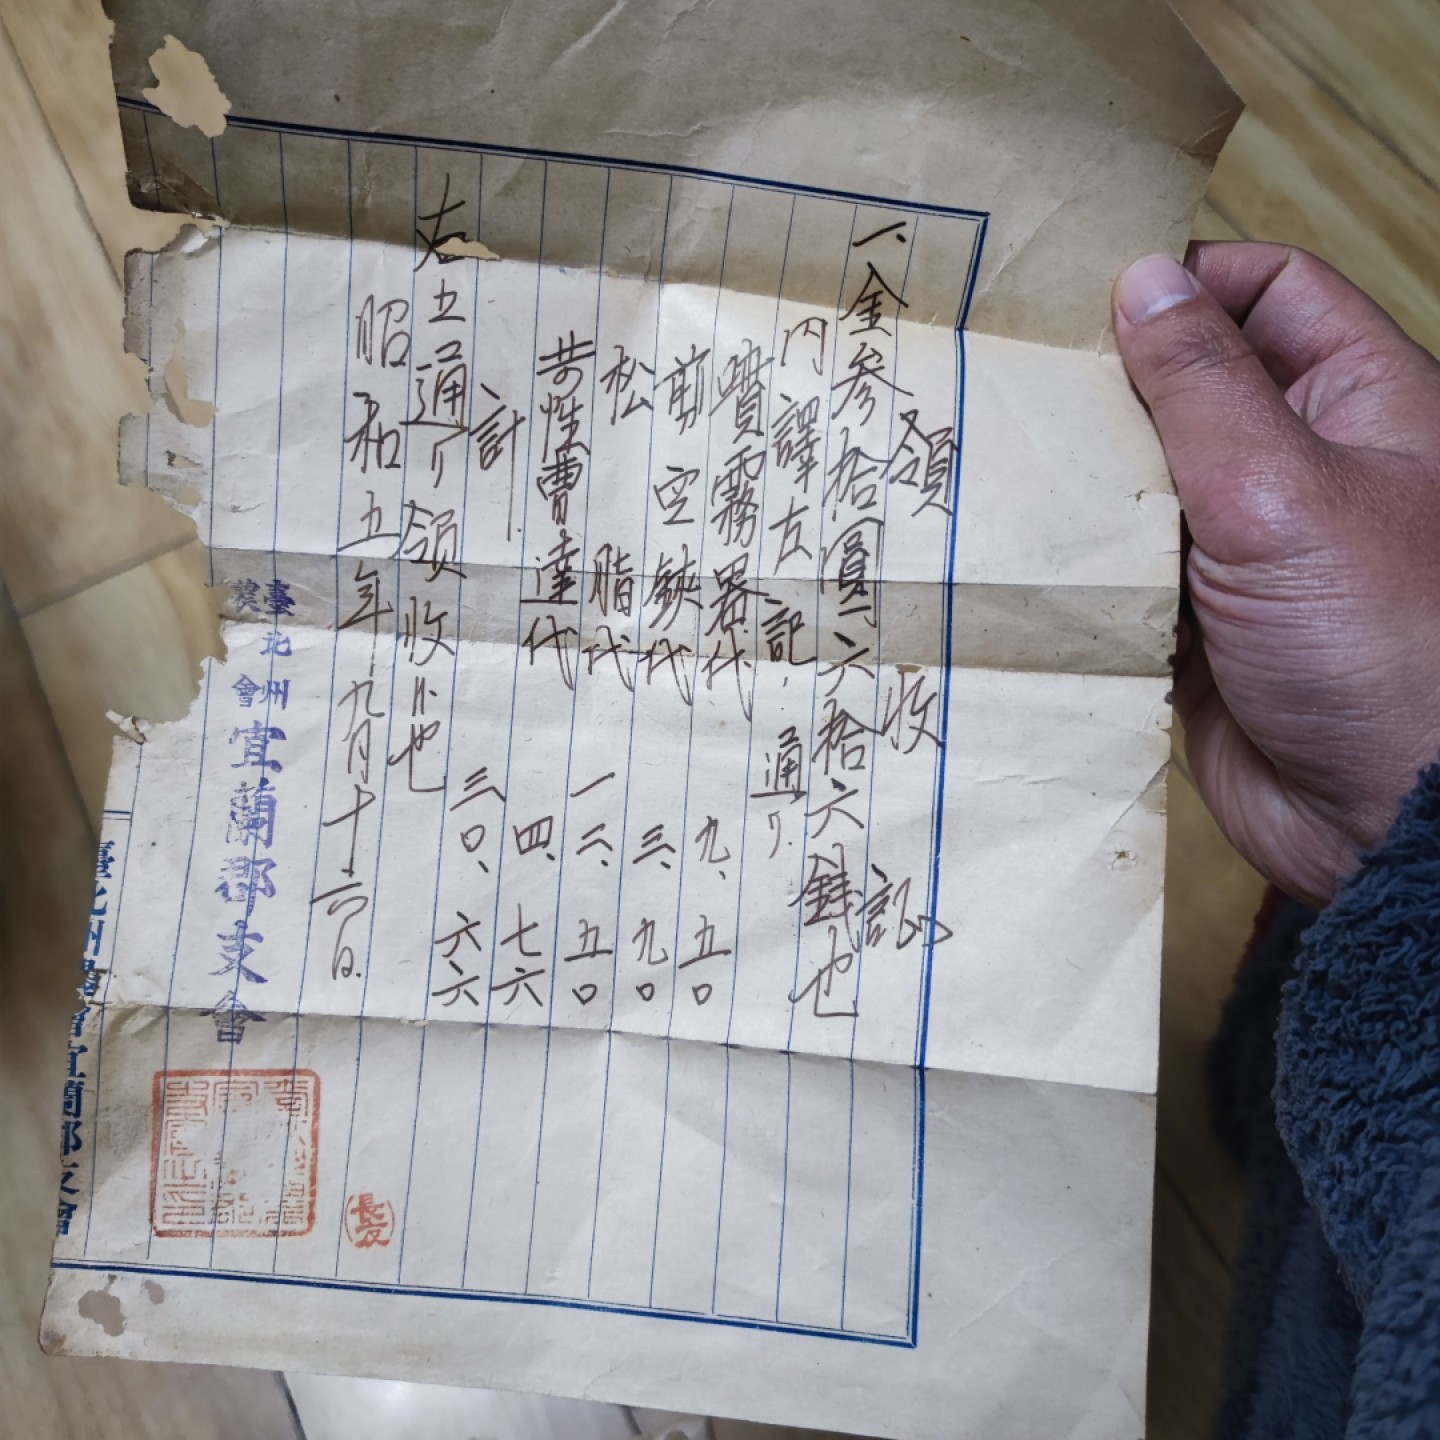 領收証
一、金参拾圓六拾六錢也
内譯左記通リ
噴霧器代 九、五〇
剪定鋏代 三、九〇
松脂代 一二、五〇
苛性曹達代 四、七六
計 三〇、六六
右之通リ領收候也
昭和五年九月十六日
臺北州
會
宜蘭郡支會
長
臺北州農會宜蘭郡支會